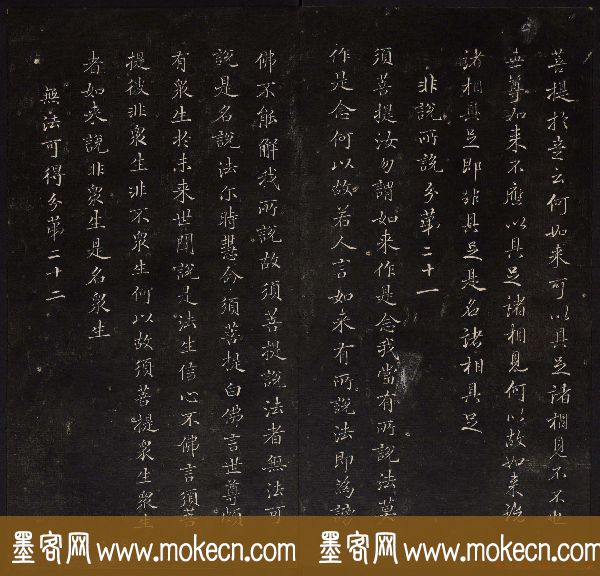 菩提於意云何如來可以具足諸相見不不也
世尊如來不應以具足諸相見何以故如來說
諸相具足即非具足是名諸相具足
非說所說分第二十一
須菩提汝勿謂如來作是念我當有所說法莫
作是念何以故若人言如來有所說法即為謗
佛不能解我所說故須菩提說法者無法可
說是名說法尔時慧命須菩提白佛言世尊頗
有衆生於未來世聞說是法生信心不佛言須菩
提彼非衆生非不衆生何以故須菩提衆生衆生
者如來說非衆生是名衆生
無法可得分第二十二
墨客网 www.mokecn.com 墨客网 www.mokecn.com